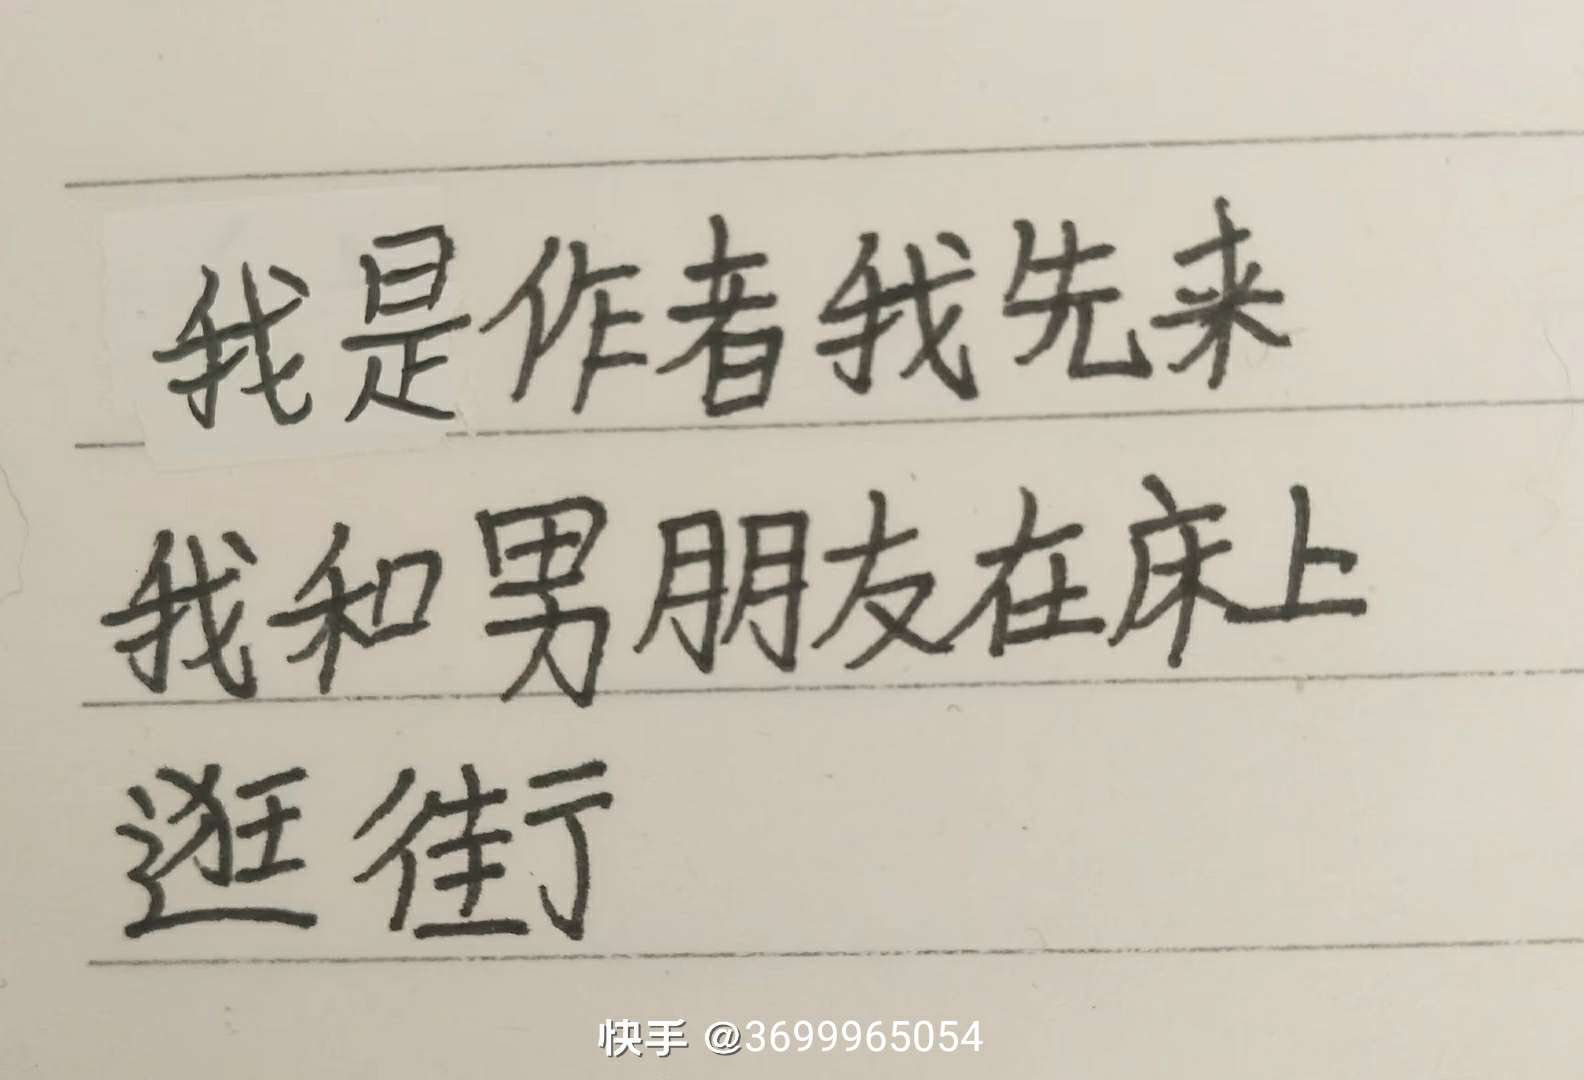 我是作者我先来
我和男朋友在床上
逛街
快手 @3699965054